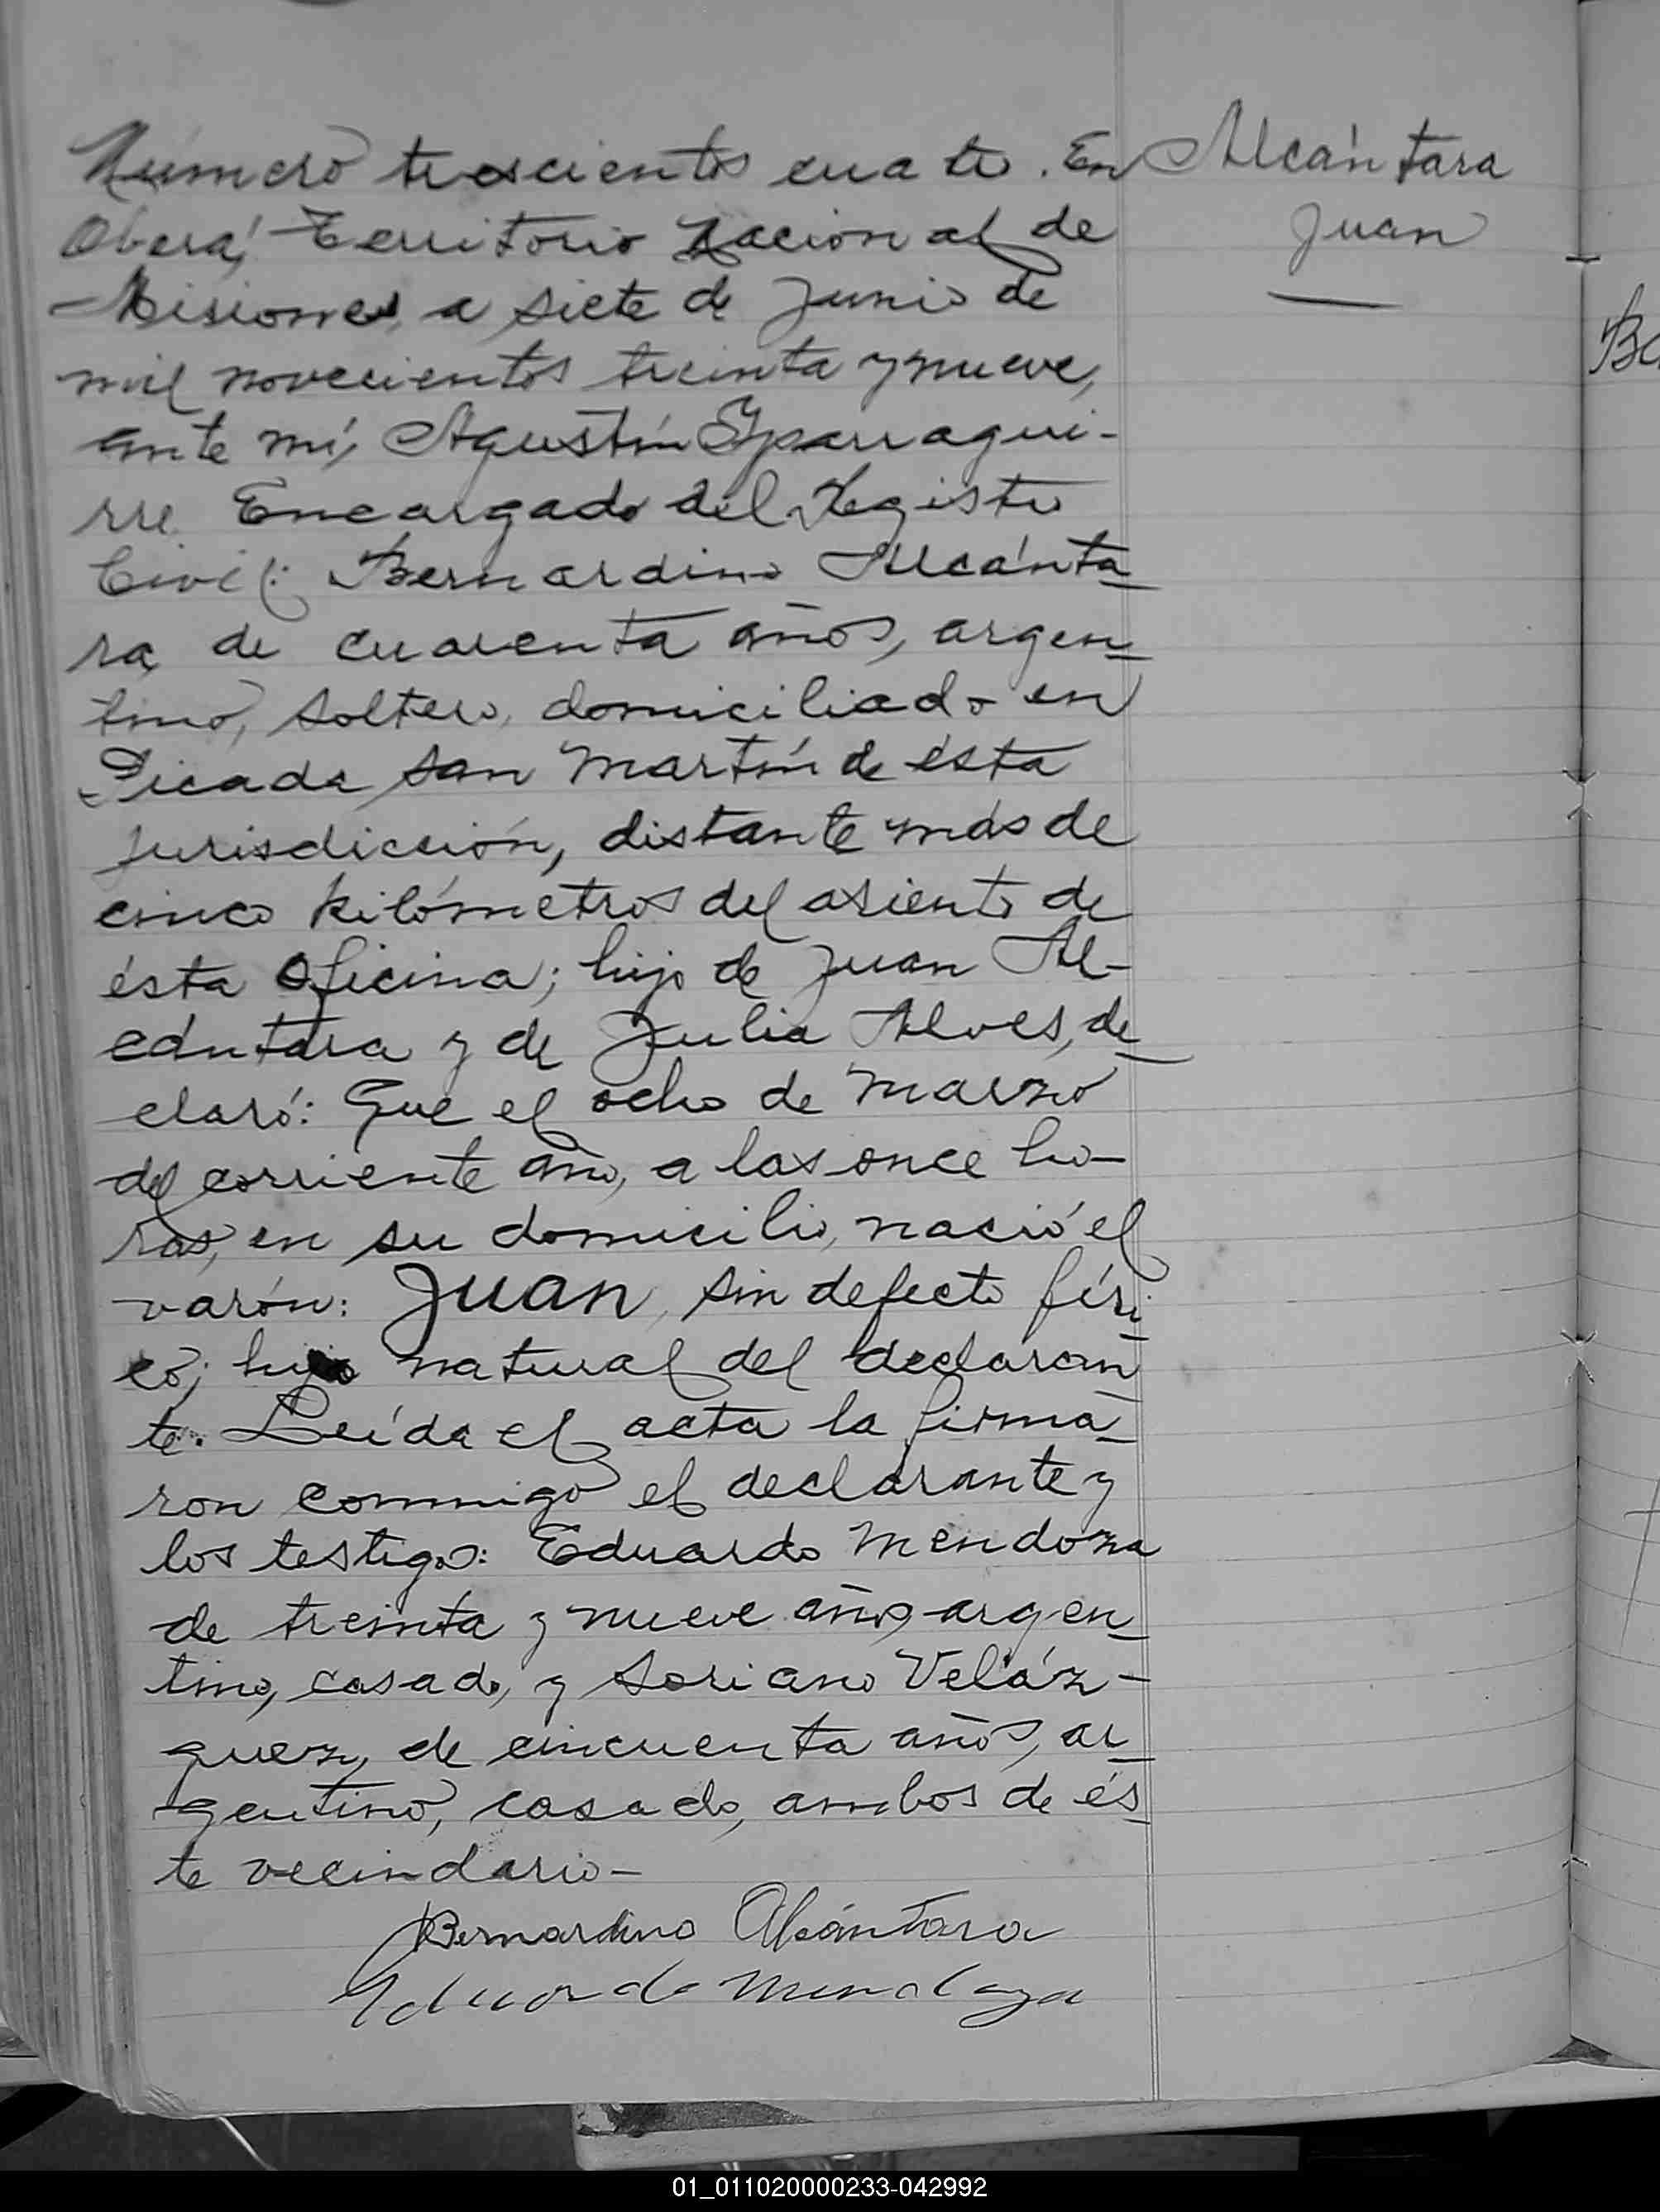 Número trescientos cuatro. En
Oberá, Territorio Nacional de
Misiones, a siete de Junio de
mil novecientos treinta y nueve,
ante mí, Agustín Yparragui-
rre Encargado del Registro
Civil: Bernardino Alcánta-
ra, de cuarenta años, argen-
tino, soltero, domiciliado en
Picada San Martín de ésta
jurisdicción, distante más de
cinco kilómetros del asiento de
ésta Oficina; hijo de Juan Al-
cántara y de Julia Alves, de-
claró: Que el ocho de Marzo
del corriente año, a las once ho-
ras, en su domicilio, nació el
varón: Juan, sin defecto físi-
co; hijo natural del declaran-
te. Leída el acta la firma-
ron conmigo el declarante y
los testigos: Eduardo Mendoza
de treinta y nueve años, argen-
tino, casado, y Soriano Veláz-
quez, de cincuenta años, ar-
gentino, casado, ambos de és-
te vecindario-
Bernardino Alcántara
Eduardo Mendoza
Alcántara
Juan
01_011020000233-042992